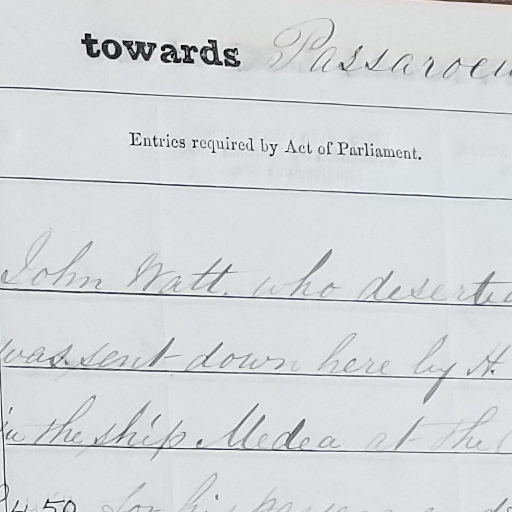 towards Passaroeu
Entries required by Act of Parliament.
John Watt. who deserted
was sent down here by H.
in the ship Medea at the
450 for his passage